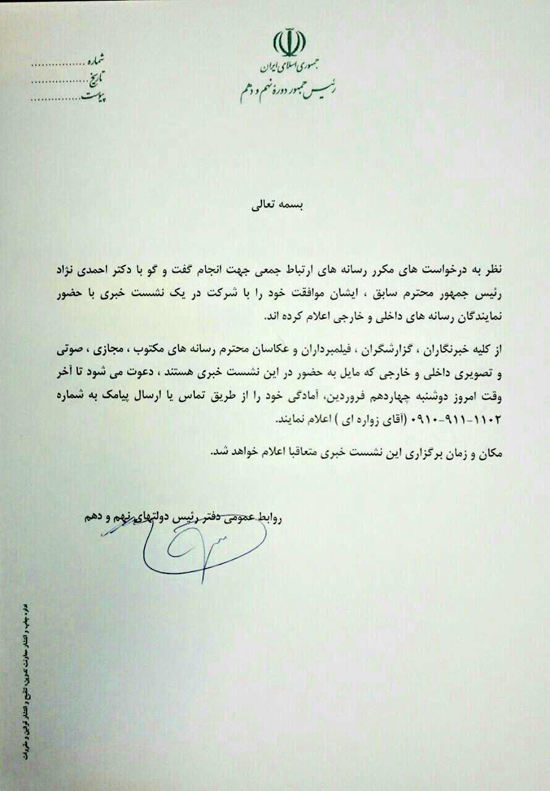 جمهوری اسلامی ایران
رئیس جمهور دوره نهم و دهم
شماره ...............
تاریخ ...............
پیوست ...............
بسمه تعالی
نظر به درخواست های مکرر رسانه های ارتباط جمعی جهت انجام گفت و گو با دکتر احمدی نژاد
رئیس جمهور محترم سابق ، ایشان موافقت خود را با شرکت در یک نشست خبری با حضور
نمایندگان رسانه های داخلی و خارجی اعلام کرده اند.
از کلیه خبرنگاران ، گزارشگران ، فیلمبرداران و عکاسان محترم رسانه های مکتوب ، مجازی ، صوتی
و تصویری داخلی و خارجی که مایل به حضور در این نشست خبری هستند ، دعوت می شود تا آخر
وقت امروز دوشنبه چهاردهم فروردین، آمادگی خود را از طریق تماس یا ارسال پیامک به شماره
۰۹۱۰-۹۱۱-۱۱۰۲ (آقای زواره ای ) اعلام نمایند.
مکان و زمان برگزاری این نشست خبری متعاقبا اعلام خواهد شد.
روابط عمومی دفتر رئیس دولتهای نهم و دهم
اداره چاپ و انتشار معاونت تدوین، تنقیح و انتشار قوانین و مقررات